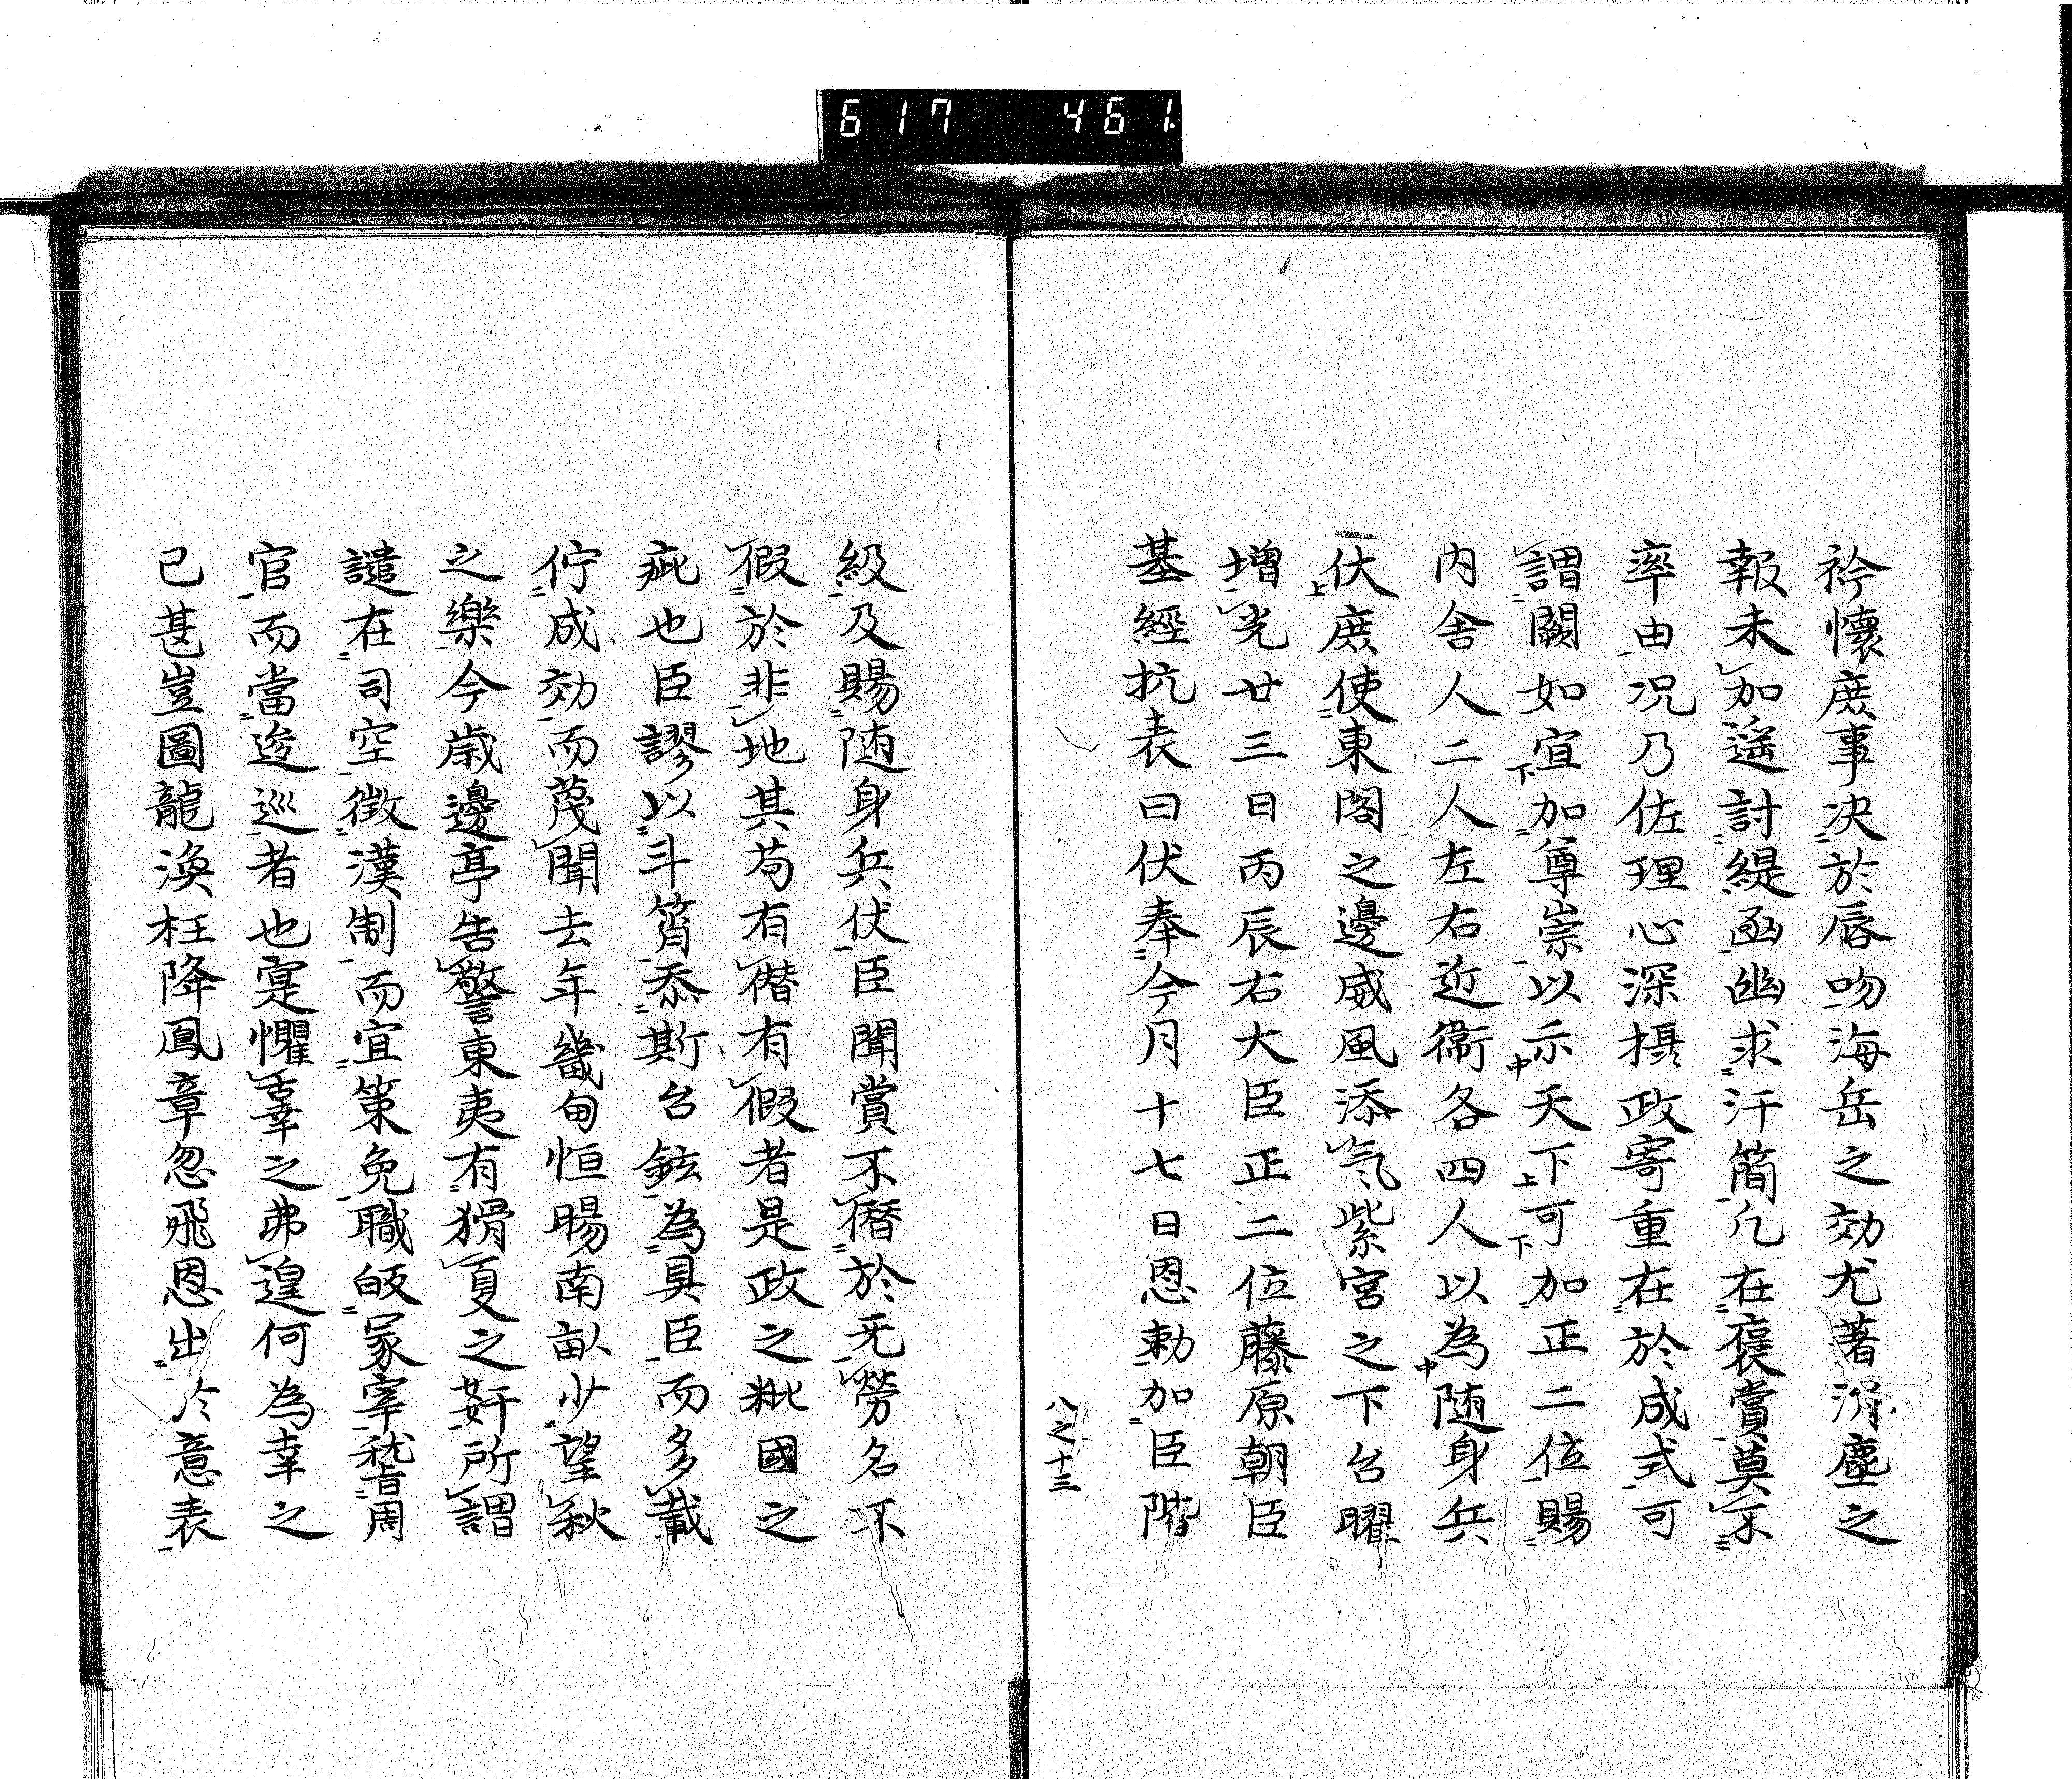 617 461.
衿懷庶事决於唇吻海岳之効尤著涓塵之
報未加遥討緹函幽求汗簡凢在褒賞莫不
率由况乃佐理心深摂政寄重在於成式可
謂闕如宜加尊崇以示天下可加正二位賜
内舎人二人左右近衞各四人以為随身兵
仗庶使東閤之邊威風添氣紫宮之下台曜
増光廿三日丙辰右大臣正二位藤原朝臣
基經抗表曰伏奉今月十七日恩勅加臣階
八之十三
級及賜随身兵仗臣聞賞不僭於无勞名不
假於非地其苟有僭有假者是政之粃國之
疵也臣謬以斗筲忝斯台鉉為具臣而多載
佇成効而蔑聞去年畿甸恒暘南畝少望秋
之樂今歳邊亭告警東夷有猾夏之姧所謂
譴在司空徴漢制而宜策免職皈冢宰稽周
官而當逡巡者也寔懼辜之弗遑何為幸之
已甚豈圖龍渙枉降鳳章忽飛恩出於意表